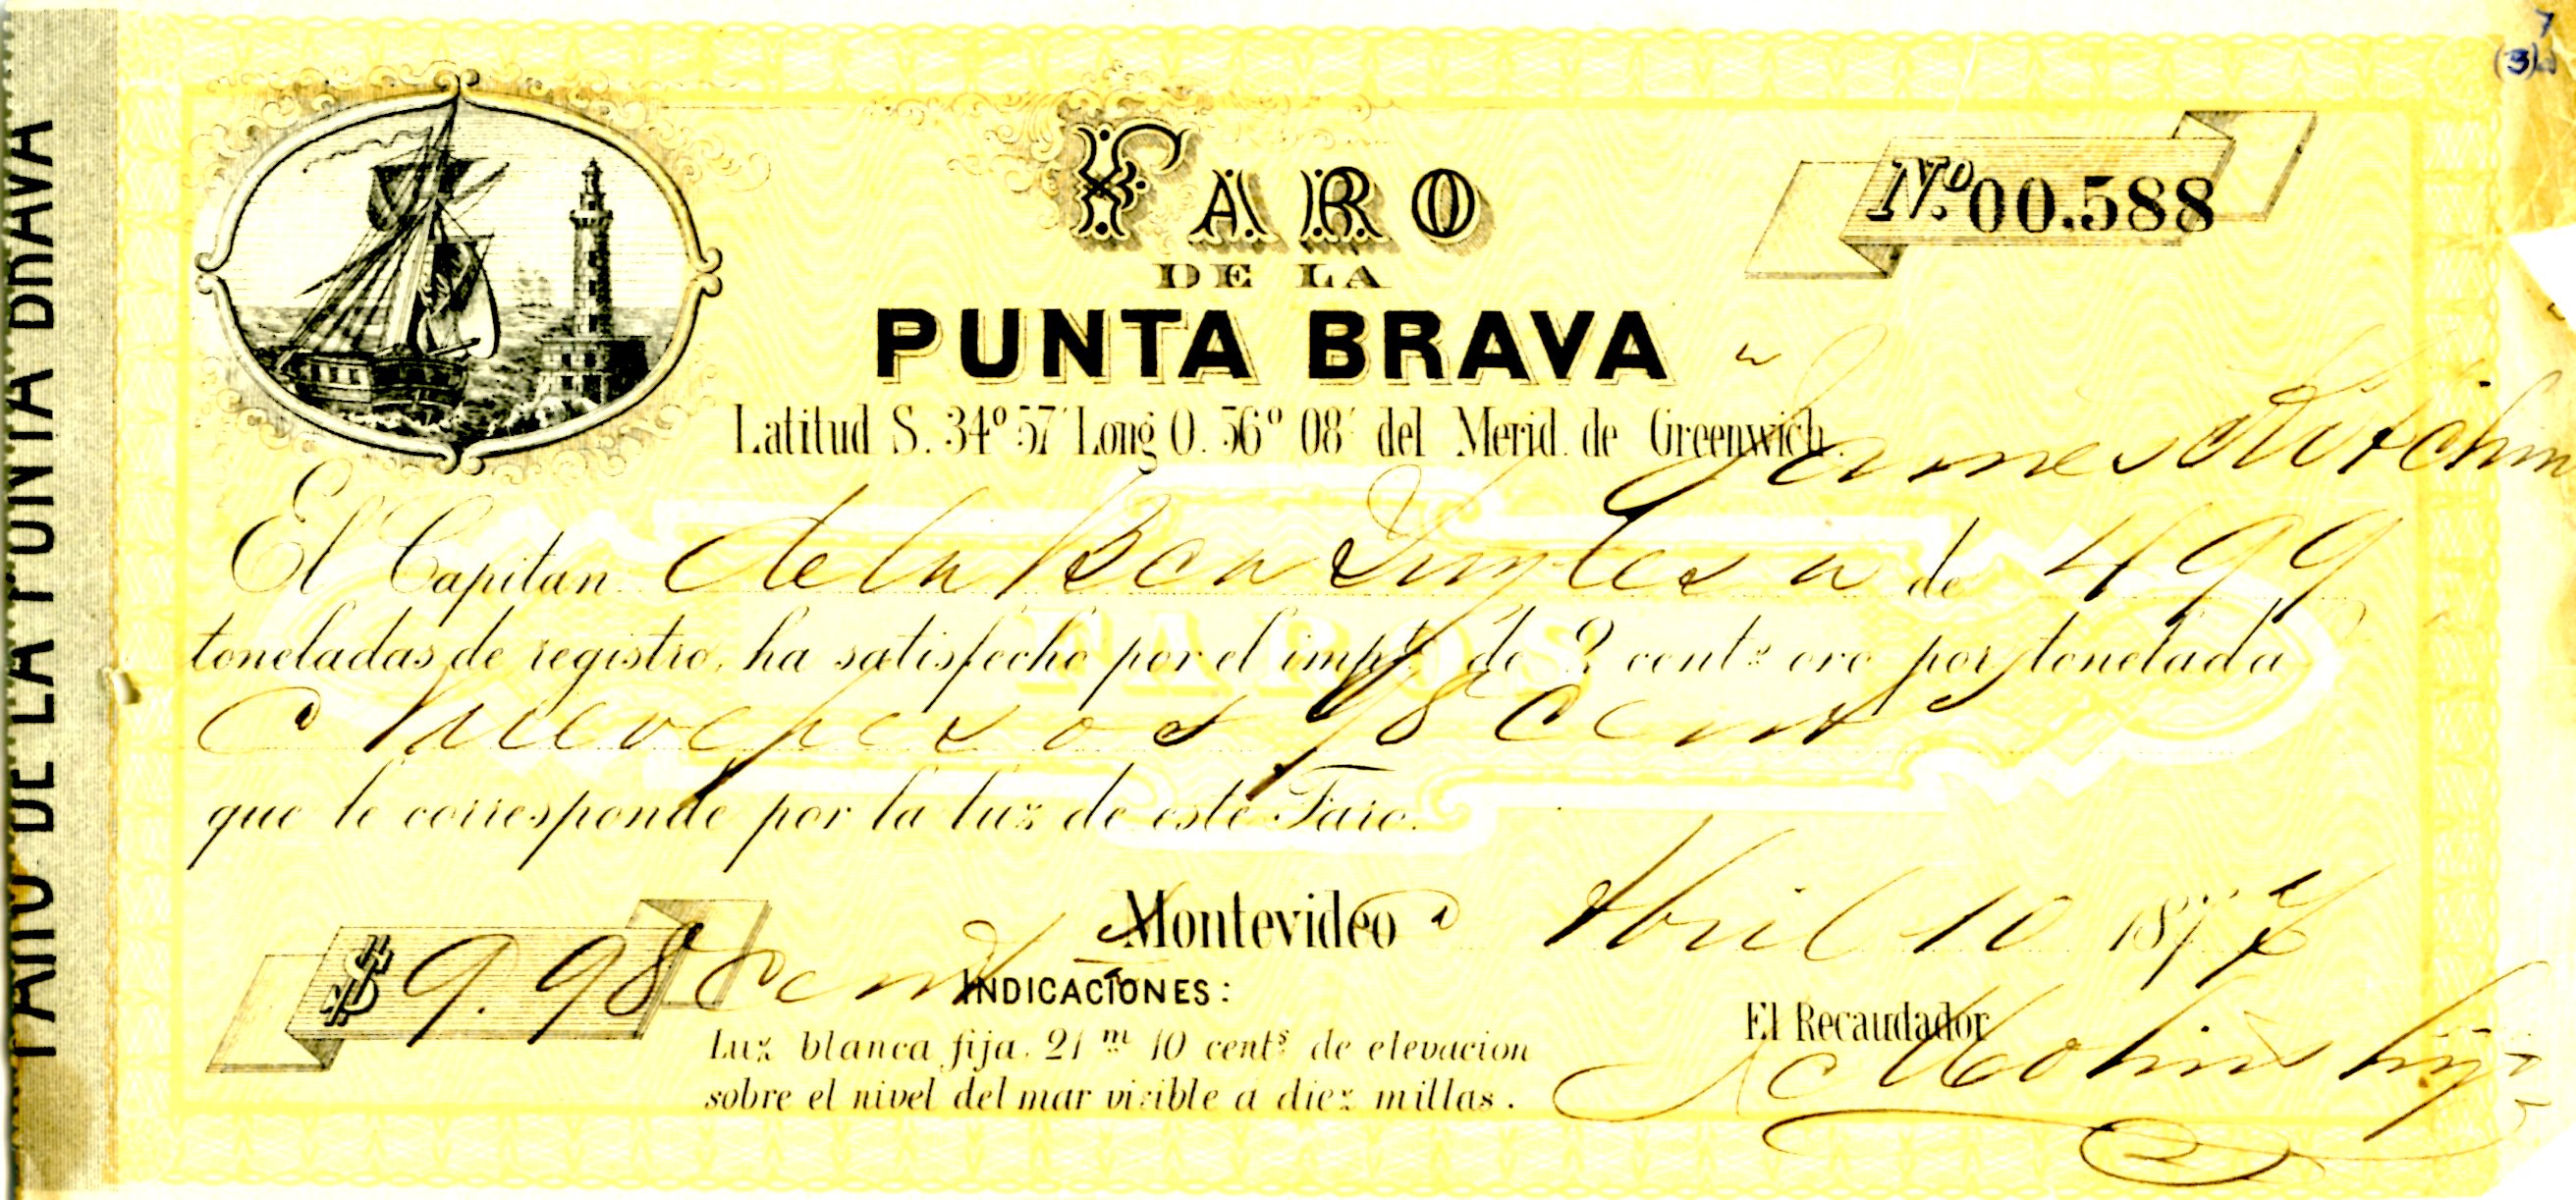 7
(3)
FARO DE LA PUNTA BRAVA
FARO
DE LA
PUNTA BRAVA
Nº 00.588
Latitud S. 34º 57' Long O. 56º 08' del Merid. de Greenwich.
" James
El Capitan de la Bca Inglesa de 499
toneladas de registro, ha satisfecho por el impto de 2 cents oro por tonelada
Nueve pesos 98 cent
que le corresponde por la luz de este Faro.
Montevideo Abril 10 1877
$ 9.98 cent
INDICACIONES:
Luz blanca fija. 21 m 10 cents de elevacion
sobre el nivel del mar visible a diez millas.
El Recaudador